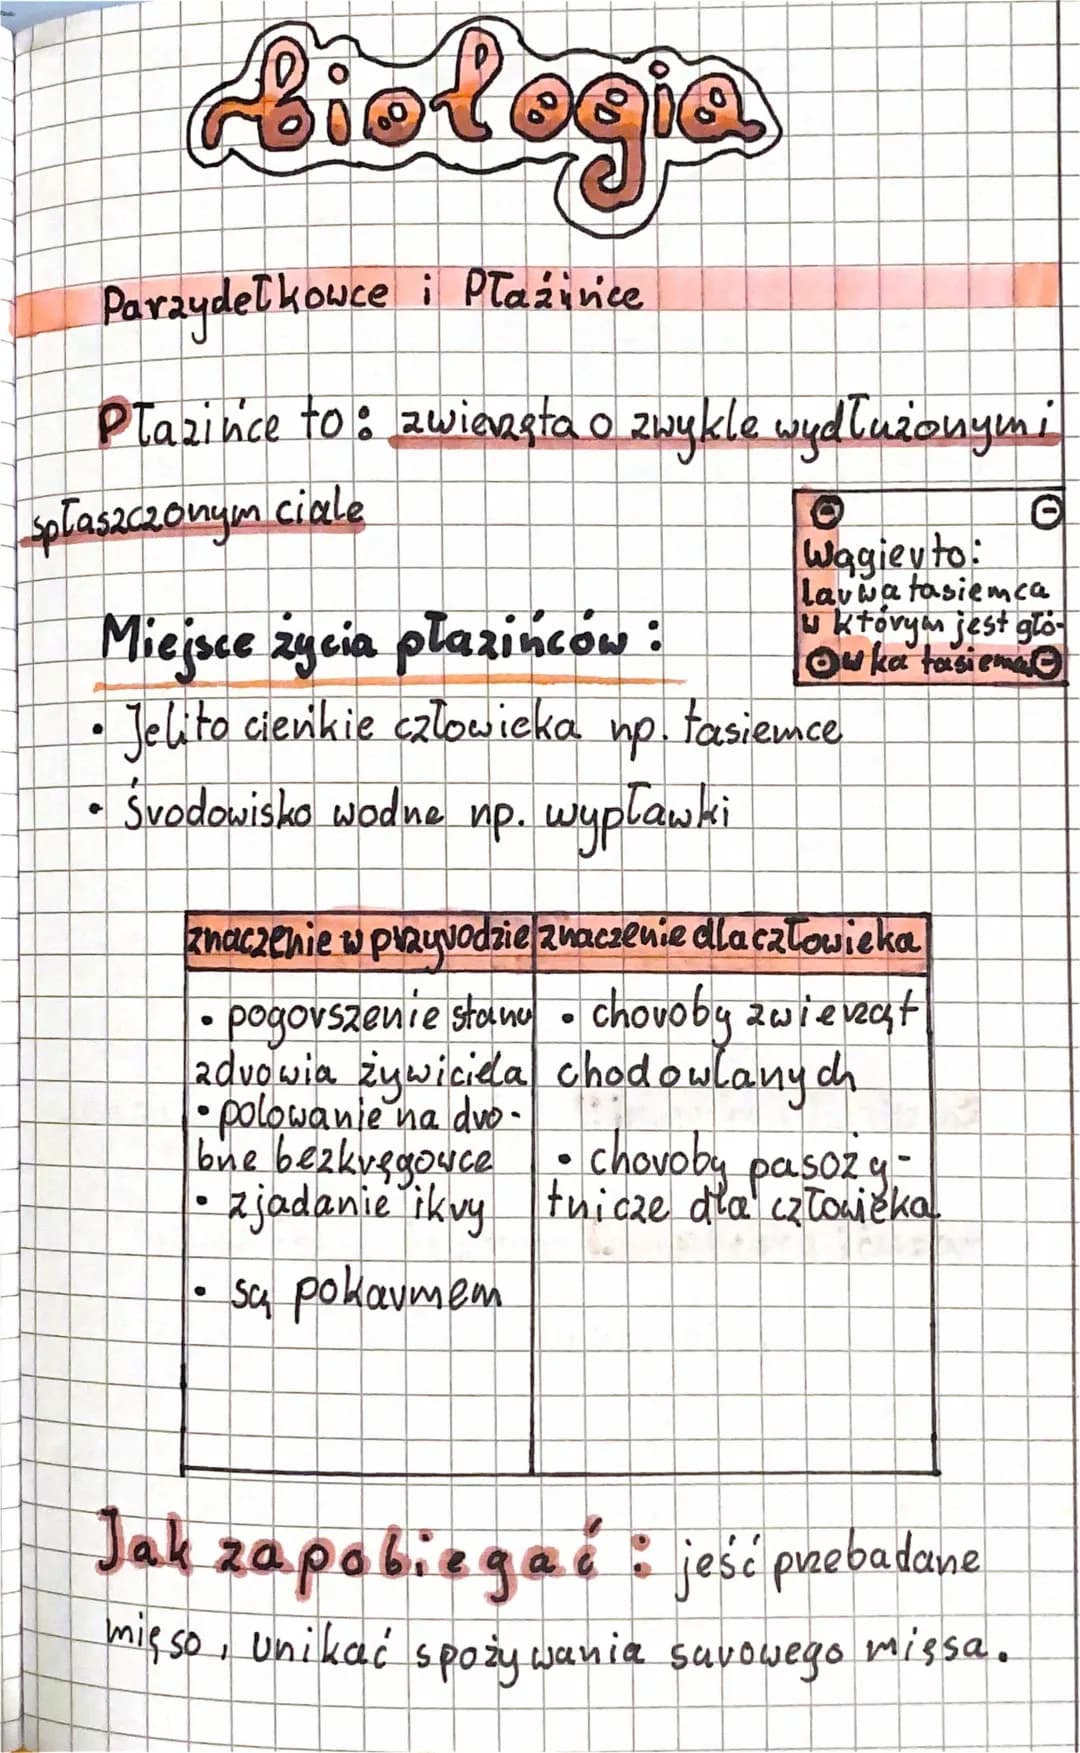 biologia
Parzydełkowce i Płaźińce
Płazińce to: zwierzęta o zwykle wydłużonym i
spłaszczonym ciale
Wągier to:
larwa tasiemca
w którym jest głó-
wka tasiemca
Miejsce życia płazińców:
• Jelito cieńkie człowieka np. tasiemce
• Środowisko wodne np. wypławki
znaczenie w przyrodzie znaczenie dla człowieka
• pogorszenie stanu
zdrowia żywiciela
• polowanie na dro-
bne bezkręgowce
• zjadanie ikry
• są pokarmem
• choroby zwierząt
chodowlanych
• choroby pasoży-
tnicze dla człowieka
Jak zapobiegać: jeść przebadane
mięso, unikać spożywania surowego mięsa.